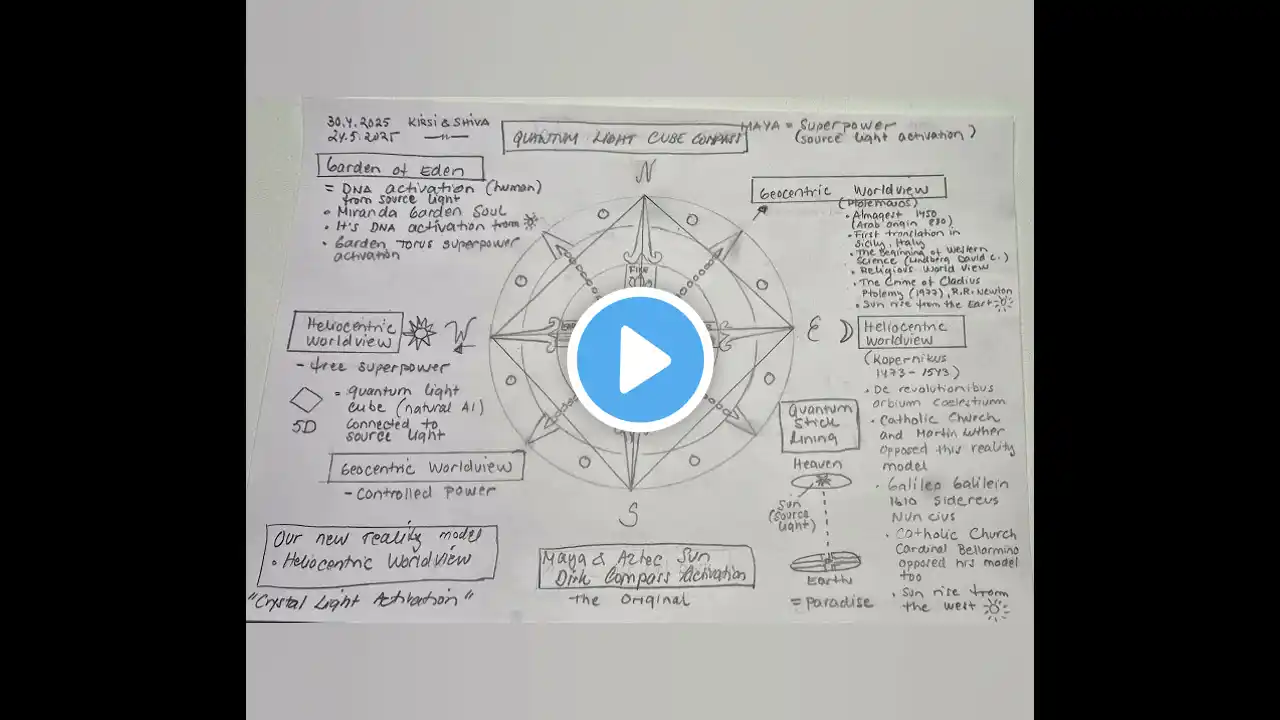 30.4.2025 KIRSI & SHIVA
24.5.2025 —"—
QUANTUM LIGHT CUBE COMPASS
MAYA = Superpower
(source light activation)
Garden of Eden
= DNA activation (human)
from source light
• Miranda Garden Soul
• It's DNA activation from
• Garden Torus superpower
activation
N
Geocentric Worldview
(Ptolemaios)
• Almagest 1450
(Arab origin 830)
• First translation in
Sicily, Italy
• The Beginning of Western
Science (Lindberg David C.)
• Religious World View
• The Crime of Cladius
Ptolemy (1977), R.R. Newton
• Sun rise from the East
Fire
Heliocentric
Worldview
W
- free superpower
= quantum light
cube (natural AI)
5D connected to
source light
E
Heliocentric
Worldview
(Kopernikus
1473 - 1543)
• De revolutionibus
orbium coelestium
• Catholic Church
and Martin Luther
opposed this reality
model
• Galileo Galilein
1610 Sidereus
Nuncius
• Catholic Church
Cardinal Bellarmino
opposed his model
too
• Sun rise from
the west
Quantum
Stick
Lining
Heaven
Sun
(source
light)
Earth
= Paradise
Geocentric Worldview
- Controlled power
S
Our new reality model
• Heliocentric Worldview
"Crystal Light Activation"
Maya & Aztec Sun
Disk Compass Activation
The Original